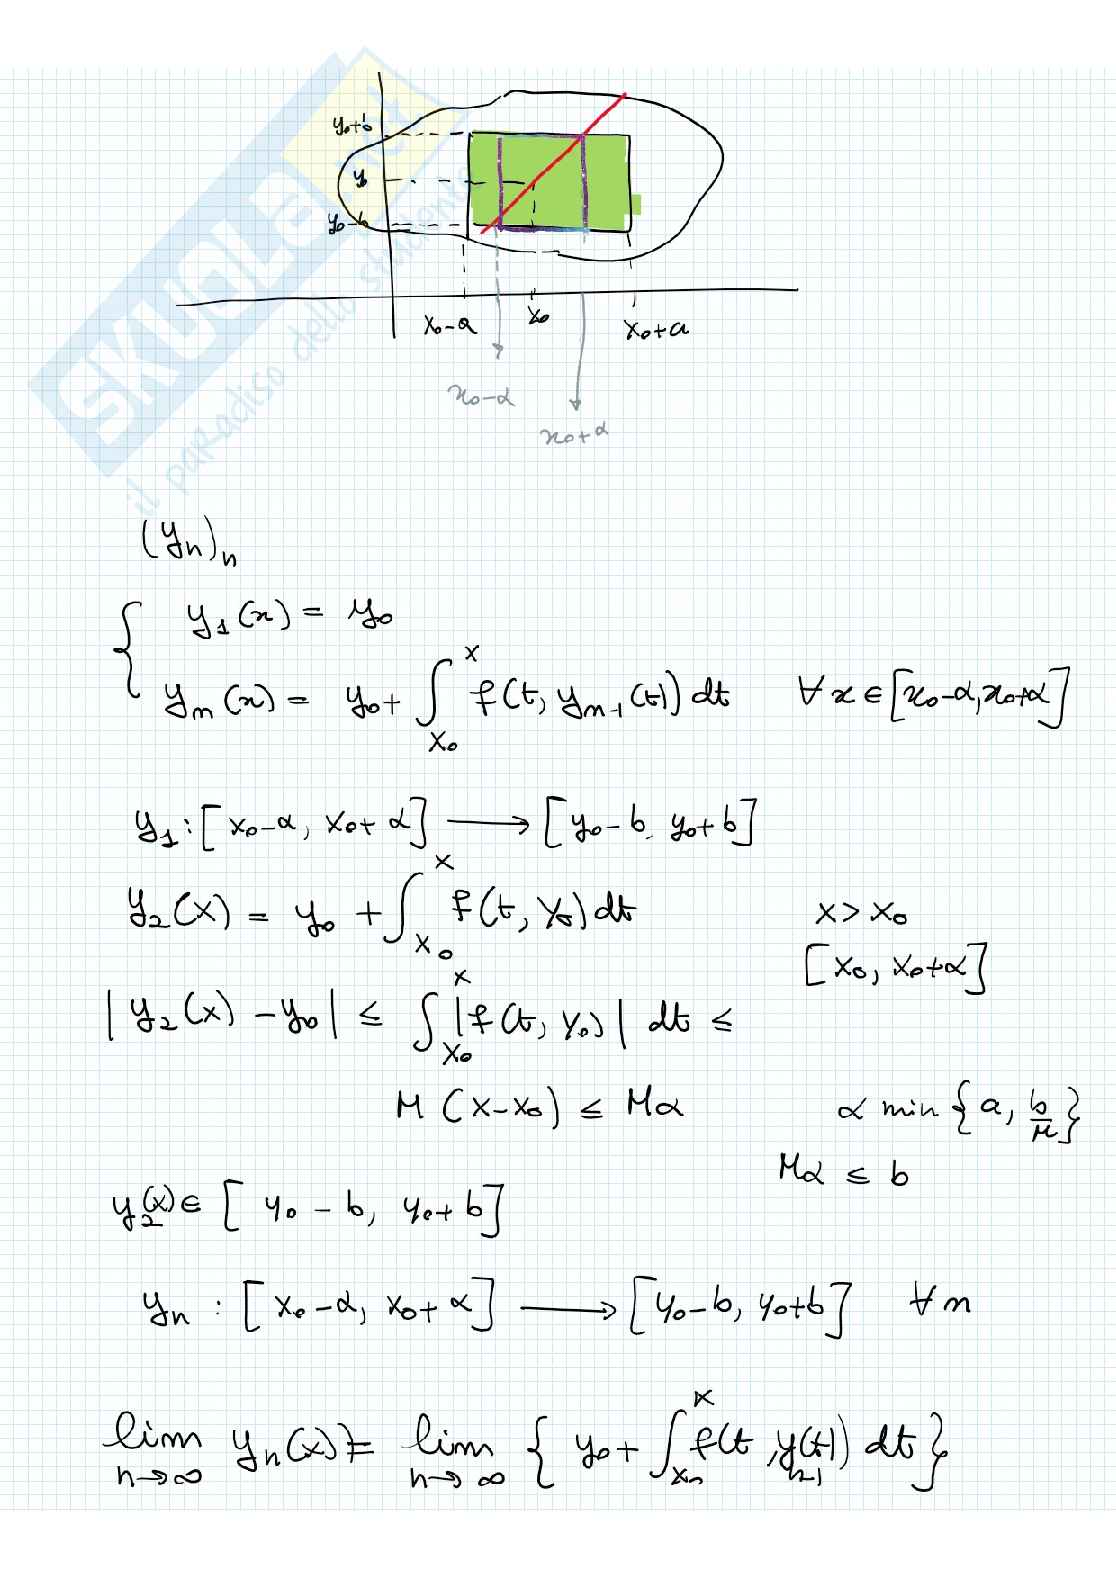 y₀+b
y₀
y₀-b
x₀-a x₀ x₀+a
x₀-α
x₀+α
SKUOLA.net
il paradiso dello studente
(yₙ)ₙ
{ y₁(x) = y₀
yₙ(x) = y₀ + ∫_{x₀}^{x} f(t, yₙ₋₁(t)) dt ∀ x ∈ [x₀-α, x₀+α]
y₁ : [x₀-α, x₀+α] ⟶ [y₀-b, y₀+b]
y₂(x) = y₀ + ∫_{x₀}^{x} f(t, y₀) dt x > x₀
[x₀, x₀+α]
|y₂(x) - y₀| ≤ ∫_{x₀}^{x} |f(t, y₀)| dt ≤
M (x-x₀) ≤ Mα α min {a, b/M}
Mα ≤ b
y₂(x) ∈ [y₀-b, y₀+b]
yₙ : [x₀-α, x₀+α] ⟶ [y₀-b, y₀+b] ∀ n
lim_{n→∞} yₙ(x) = lim_{n→∞} { y₀ + ∫_{x₀}^{x} f(t, yₙ₋₁(t)) dt }